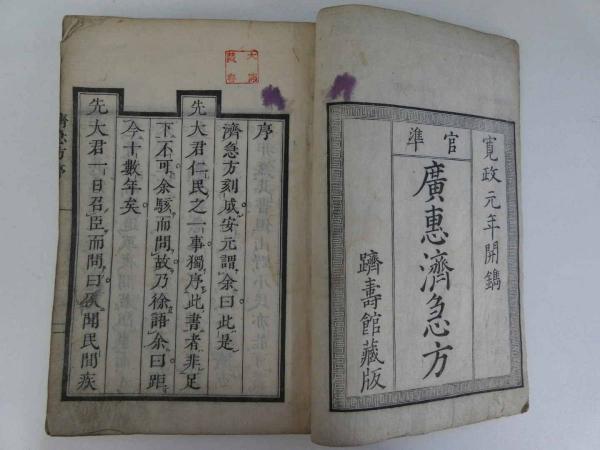 官準
寛政元年開鐫
廣惠濟急方
躋壽館藏版
序
濟急方刻成安元謂余曰此是
先大君仁民之一事獨序此書者非足
下不可余駭而問故乃徐語余曰距
今十數年矣
先大君一日召臣而問曰孤聞民間疾
濟急方序